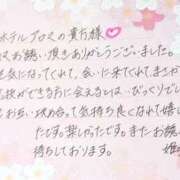 ホテルプロスの貴行様
お誘い頂きありがとうございました。
気になってくれて、会いに来てくれて、まさか
に会えるとは、びっくりでし
お互い攻め合って気持ち良くなれて嬉し
たです。楽しかったです。またお誘
待ちしております。